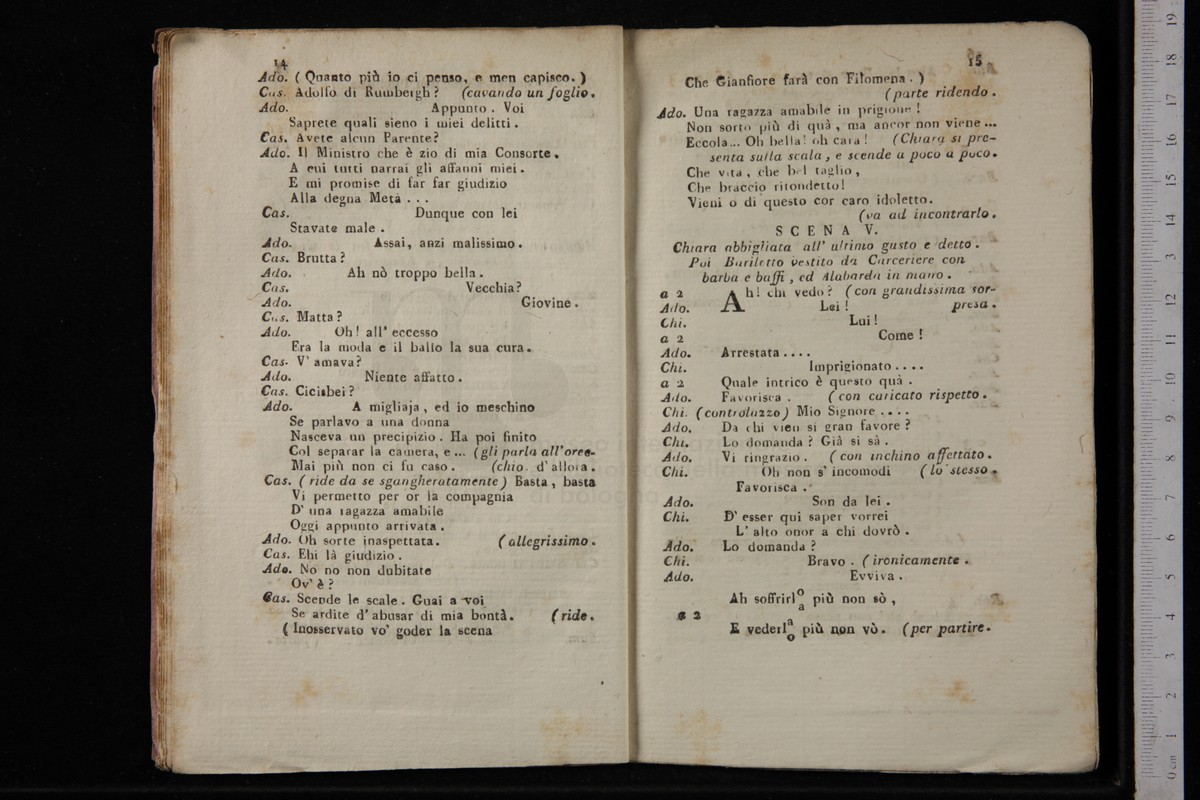 14
Ado. ( Quanto più io ci penso, e men capisco. )
Cas. Adolfo di Rumbergh? (cavando un foglio.
Ado. Appunto. Voi
Saprete quali sieno i miei delitti.
Cas. Avete alcun Parente?
Ado. Il Ministro che è zio di mia Consorte.
A cui tutti narrai gli affanni miei.
E mi promise di far far giudizio
Alla degna Metà ...
Cas. Dunque con lei
Stavate male.
Ado. Assai, anzi malissimo.
Cas. Brutta?
Ado. Ah nò troppo bella.
Cas. Vecchia?
Ado. Giovine.
Cas. Matta?
Ado. Oh! all' eccesso
Era la moda e il ballo la sua cura.
Cas. V' amava?
Ado. Niente affatto.
Cas. Cicisbei?
Ado. A migliaja, ed io meschino
Se parlavo a una donna
Nasceva un precipizio. Ha poi finito
Col separar la camera, e ... (gli parla all'orec-
Mai più non ci fu caso. (chio. d' allora.
Cas. ( ride da se sgangheratamente) Basta, basta
Vi permetto per or la compagnia
D' una ragazza amabile
Oggi appunto arrivata.
Ado. Oh sorte inaspettata. (allegrissimo.
Cas. Ehi là giudizio.
Ado. No no non dubitate
Ov' è?
Cas. Scende le scale. Guai a voi
Se ardite d' abusar di mia bontà. (ride.
( Inosservato vo' goder la scena
15
Che Gianfiore farà con Filomena. )
(parte ridendo.
Ado. Una ragazza amabile in prigione!
Non sorto più di quà, ma ancor non viene ...
Eccola... Oh bella! oh cara! (Chiara si pre-
senta sulla scala, e scende a poco a poco.
Che vita, che bel taglio,
Che braccio ritondetto!
Vieni o di questo cor caro idoletto.
(va ad incontrarlo.
SCENA V.
Chiara abbigliata all' ultimo gusto e detto.
Poi Bariletto vestito da Carceriere con
barba e baffi, ed Alabarda in mano.
a 2 Ah! chi vedo? (con grandissima sor-
Ado. Lei! presa.
Chi. Lui!
a 2 Come!
Ado. Arrestata ....
Chi. Imprigionato ....
a 2 Quale intrico è questo quà.
Ado. Favorisca. (con caricato rispetto.
Chi. (controlazzo) Mio Signore ....
Ado. Da chi vien si gran favore?
Chi. Lo domanda? Già si sà.
Ado. Vi ringrazio. (con inchino affettato.
Chi. Oh non s' incomodi (lo stesso.
Favorisca.
Ado. Son da lei.
Chi. D' esser qui saper vorrei
L' alto onor a chi dovrò.
Ado. Lo domanda?
Chi. Bravo. (ironicamente.
Ado. Evviva.
Ah soffrirl o a più non sò,
a 2
E vederl a o più non vò. (per partire.